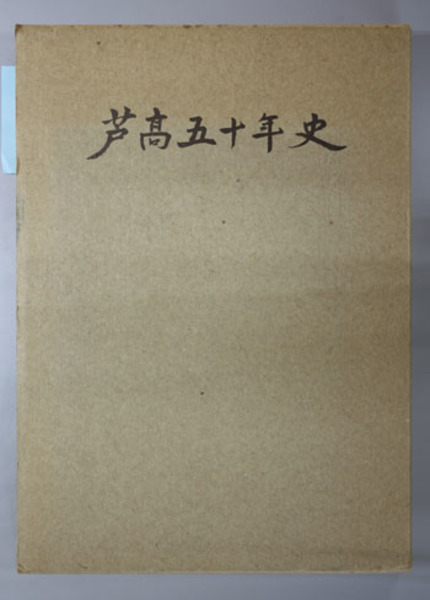 芦髙五十年史